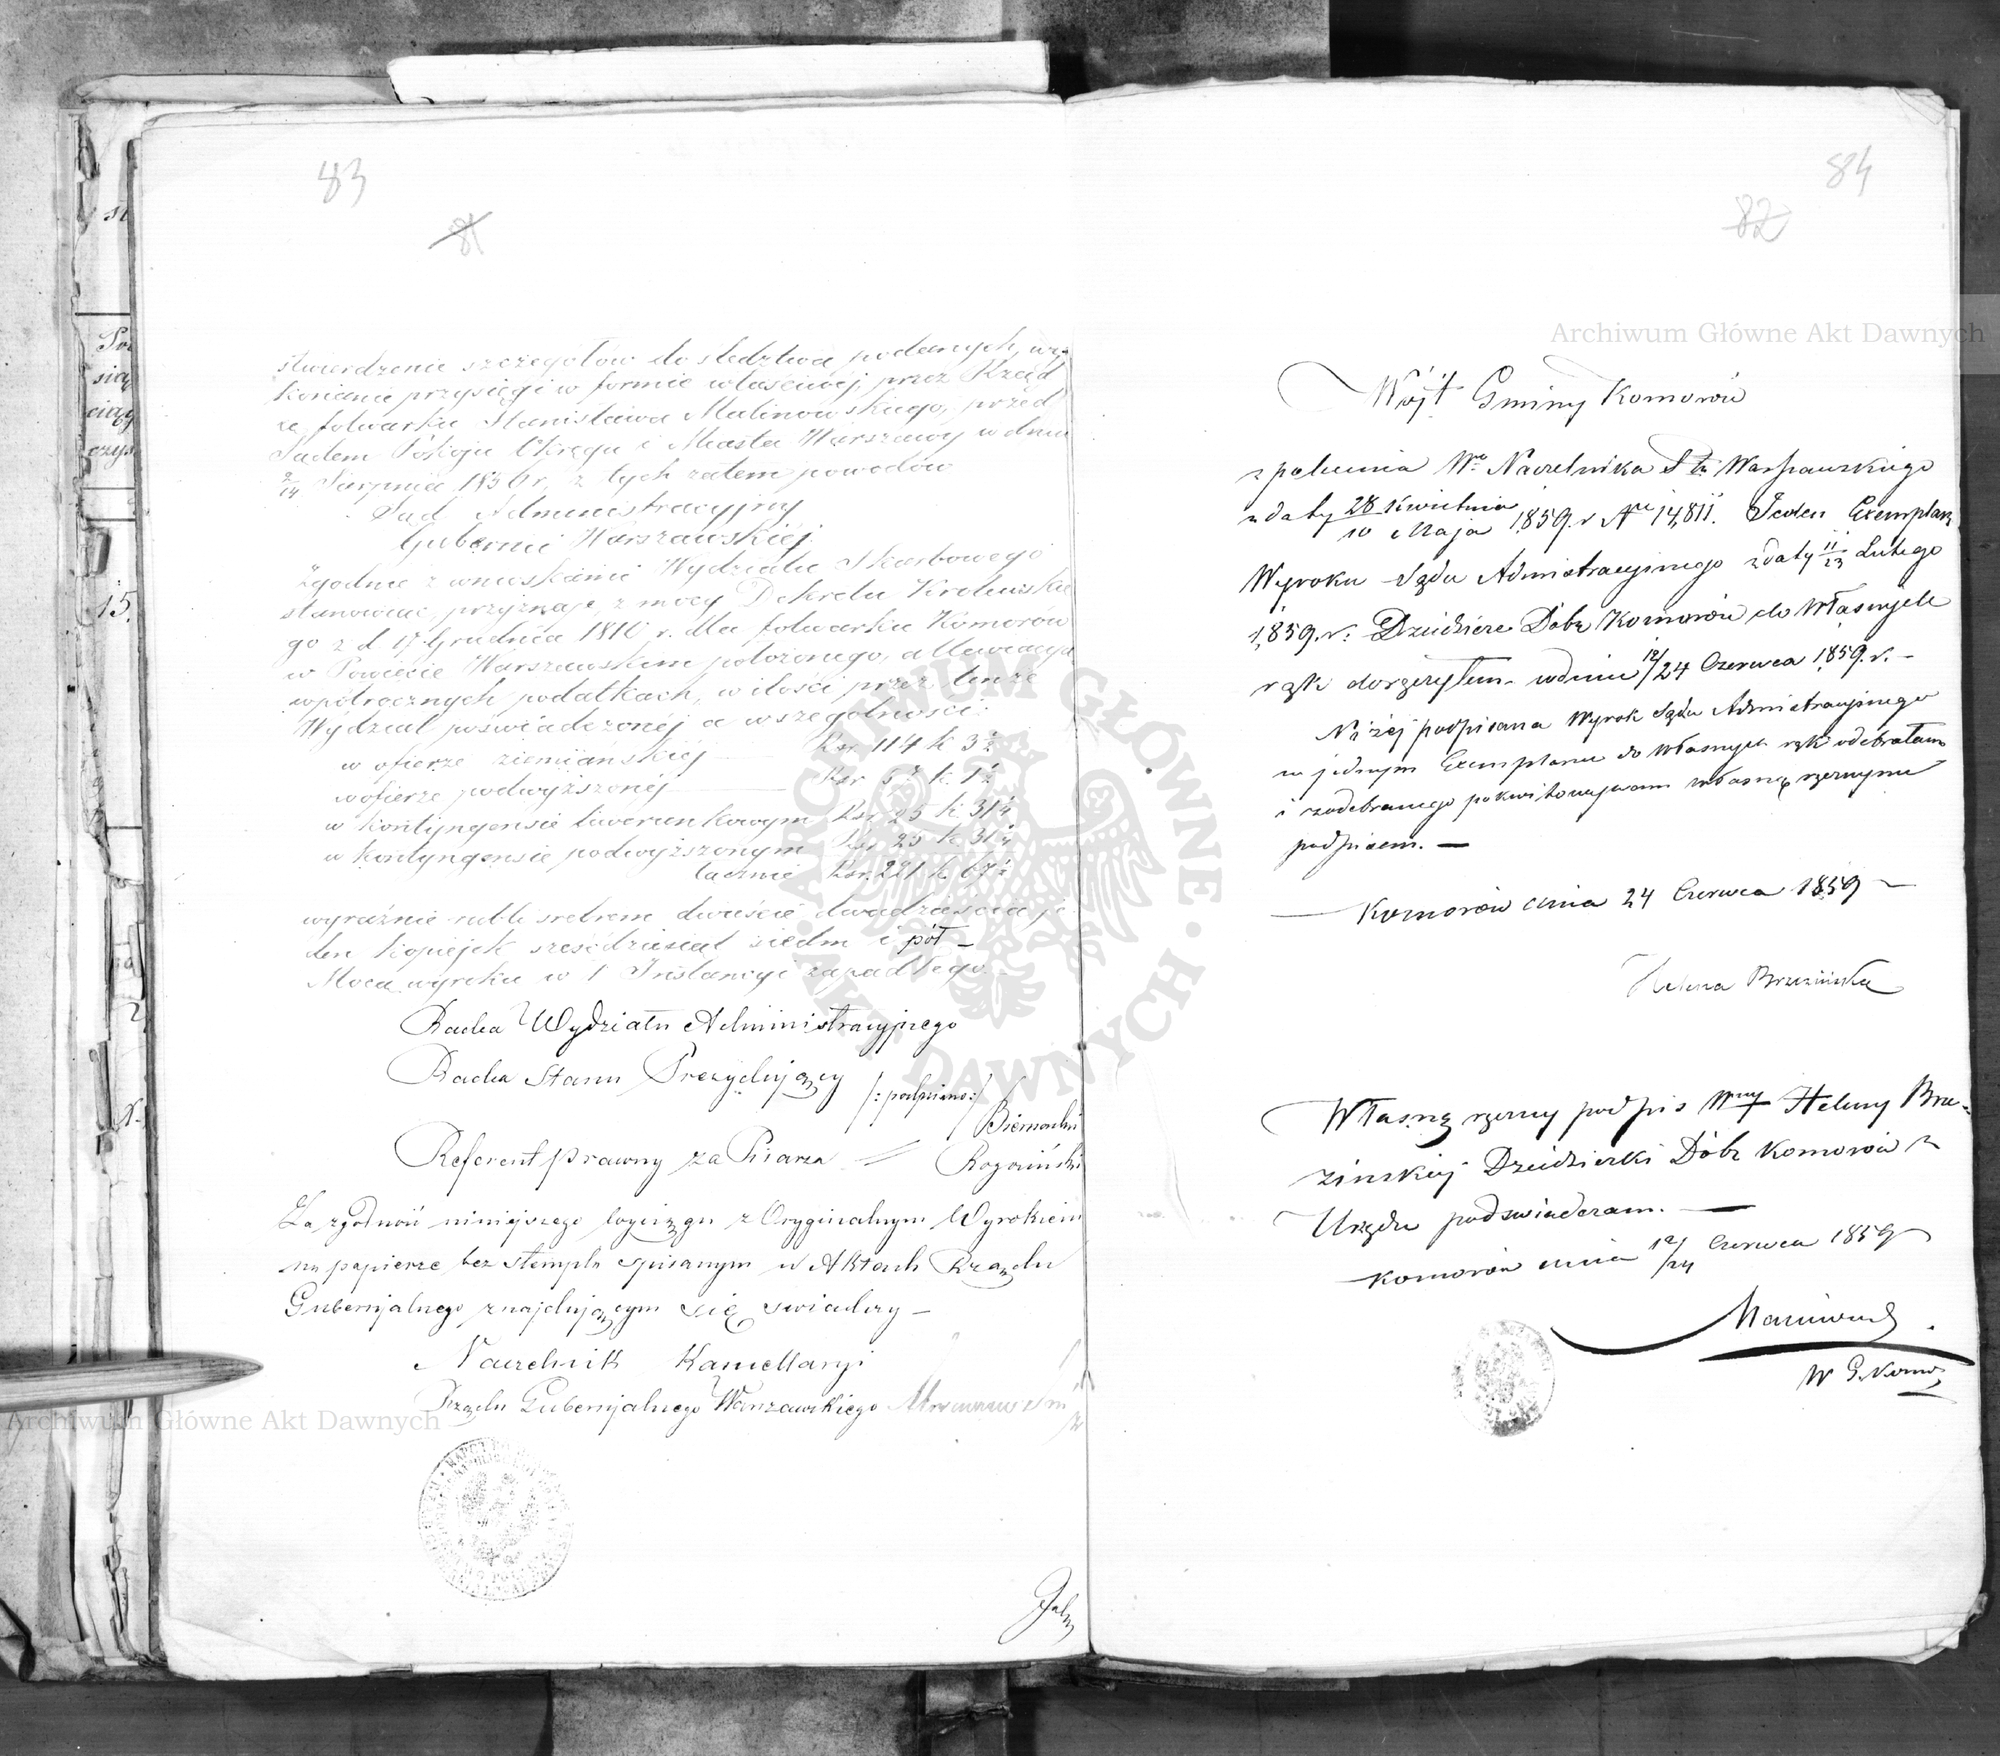 83
81
stwierdzenie szczegółów do śledztwa podanych, wy-
konanie przysięgi w formie właściwéj przez Rządź
cę folwarku Stanisława Malinowskiego, przed
Sądem Pokoju Okręgu i Miasta Warszawy w dniu
2/14 Sierpnia 1856 r, z tych zatem powodów
Sąd Administracyjny
Gubernii Warszawskiéj
Zgodnie z wnioskami Wydziału Skarbowego
stanowiąc, przyznaje z mocy Dekretu Królewskie
go z d. 17 Grudnia 1810 r. dla folwarku Komorów
w Powiecie Warszawskim położonego, allewiacyą
w półrocznych podatkach, w ilości przez tenże
Wydział poświadczonéj a w szczególności:
w ofierze ziemiańskiéj — Rsr. 114 k 3½
w ofierze podwyższonéj — Rsr 57 k 1½
w kontyngensie liwerunkowym Rsr 25 k 31¼
w kontyngensie podwyższonym Rsr 25 k 31¼
łącznie Rsr. 221 k 67½
wyraźnie rubli srebrem dwieście dwadzieścia je
den kopiejek sześćdziesiąt siedm i pół —
Mocą wyroku w 1 Instancyi zapadłego. —
Radca Wydziału Administracyjnego
Radca Stanu Prezydujący
/: podpisano :/
Referent prawny za Pisarza — Rogoziński
Za zgodność niniejszego wyciągu z Oryginalnym Wyrokiem
na papierze bez stempla spisanym w Aktach Rządu
Gubernjalnego znajdującym się świadczy —
Naczelnik Kancellaryi
Rządu Gubernjalnego Warszawskiego
84
82
Wójt Gminy Komorów
z polecenia Wo Naczelnika Ptu Warszawskiego
z daty 28 Kwietnia / 10 Maja 1859. r No 14,811. Jeden Exemplarz
Wyroku Sądu Administracyjnego z daty 11/23 Lutego
1859. r. Dziedzicce Dóbr Komorów do Własnych
rąk doręczyłem w dniu 12/24 Czerwca 1859. r. —
Niżéj podpisana Wyrok Sądu Administracyjnego
w jednym Exemplarzu do Własnych rąk odebrałam
i z odebranego pokwitowywam własnoręcznym
podpisem. —
— Komorów dnia 24 Czerwca 1859 —
Helena Brzezińska
Własnoręczny podpis Wny Heleny Brze-
zinskiéj Dziedziczki Dóbr Komorów z
Urzędu poświadczam. —
Komorów dnia 12/24 Czerwca 1859
W G. Komor
Archiwum Główne Akt Dawnych
Archiwum Główne Akt Dawnych
ARCHIWUM GŁÓWNE · AKT DAWNYCH ·